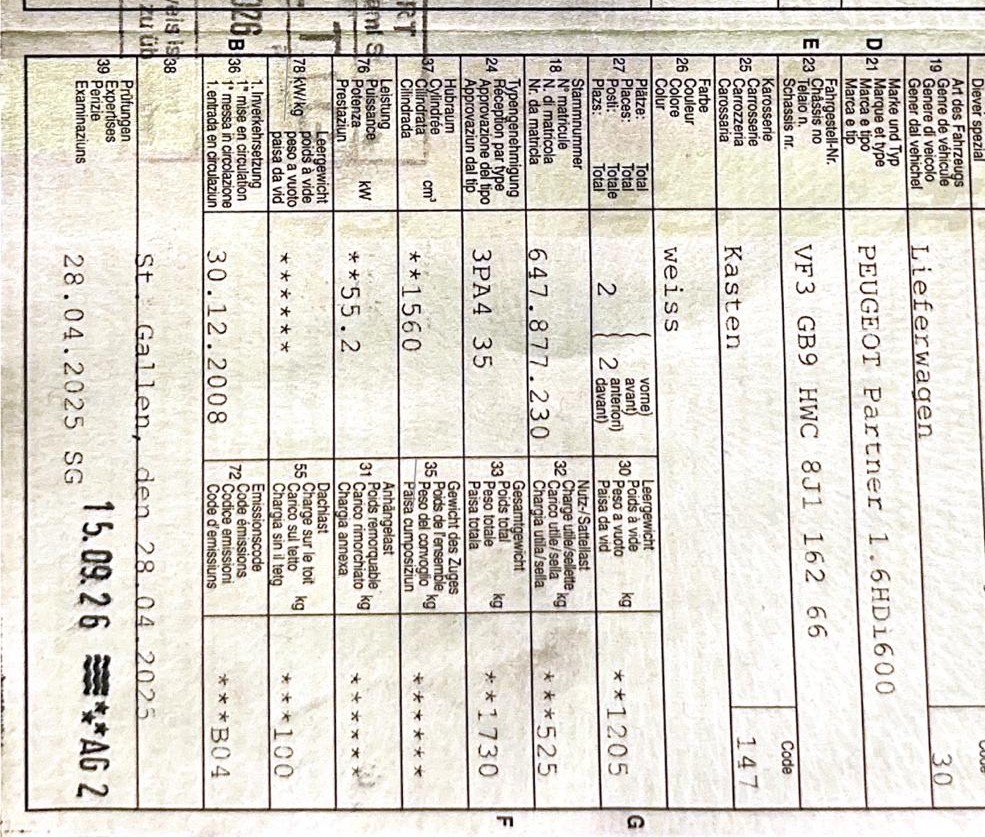 Diever spezial
Art des Fahrzeugs
Genre de véhicule
19 Genere di veicolo
Gener dal vehichel
Lieferwagen
Code
30
Marke und Typ
D 21 Marque et type
Marca e tipo
Marca e tip
PEUGEOT Partner 1.6HDi600
Fahrgestell-Nr.
E 23 Châssis no
Telaio n.
Schassis nr.
VF3 GB9 HWC 8J1 162 66
Karosserie
25 Carrosserie
Carrozzeria
Carossaria
Kasten
Code
147
Farbe
26 Couleur
Colore
Colur
weiss
Plätze: Total
27 Places: Total
Posti: Totale
Plazs: Total
2 ( 2
vorne)
avant)
anteriori)
davant)
Leergewicht
30 Poids à vide
Peso a vuoto kg
Paisa da vid
**1205
G
Stammnummer
18 N° matricule
N. di matricola
Nr. da matricla
647.877.230
Nutz-/Sattellast
32 Charge utile/sellette
Carico utile/sella kg
Chargia utila/sella
***525
Typengenehmigung
24 Réception par type
Approvazione del tipo
Approvaziun dal tip
3PA4 35
Gesamtgewicht
33 Poids total
Peso totale kg
Paisa totala
**1730
F
Hubraum
37 Cylindrée
Cilindrata cm³
Cilindrada
**1560
Gewicht des Zuges
35 Poids de l'ensemble
Peso del convoglio kg
Paisa cumposiziun
******
Leistung
76 Puissance
Potenza kW
Prestaziun
**55.2
Anhängelast
31 Poids remorquable
Carico rimorchiato kg
Chargia annexa
******
Leergewicht
78 kW/kg poids à vide
peso a vuoto
paisa da vid
******
Dachlast
55 Charge sur le toit
Carico sul tetto kg
Chargia sin il tetg
***100
1. Inverkehrsetzung
B 36 1re mise en circulation
1a messa in circolazione
1. entrada en circulaziun
30.12.2008
Emissionscode
72 Code émissions
Codice emissioni
Code d'emissiuns
***B04
38
St. Gallen, den 28.04.2025
Prüfungen
39 Expertises
Perizie
Examinaziuns
28.04.2025 SG
15.09.26 **AG 2